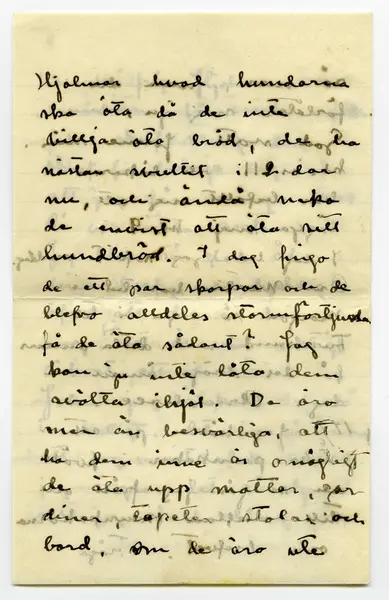 Hjalmar hvad hundarna
ska äta då de inte
villja äta bröd, de ha
nästan svultit i 2 dar
nu, och ändå neka
de envist att äta sitt
hundbröd. I dag fingo
de ett par skorpor och de
blefvo alldeles stormförtjusta
få de äta sådant? Jag
kan ju inte låta dem
svälta ihjäl. De äro
mer än besvärliga, att
ha dem inne är omöjligt
de äta upp mattor, gar
diner, tapeter, stolar och
bord, om de äro ute